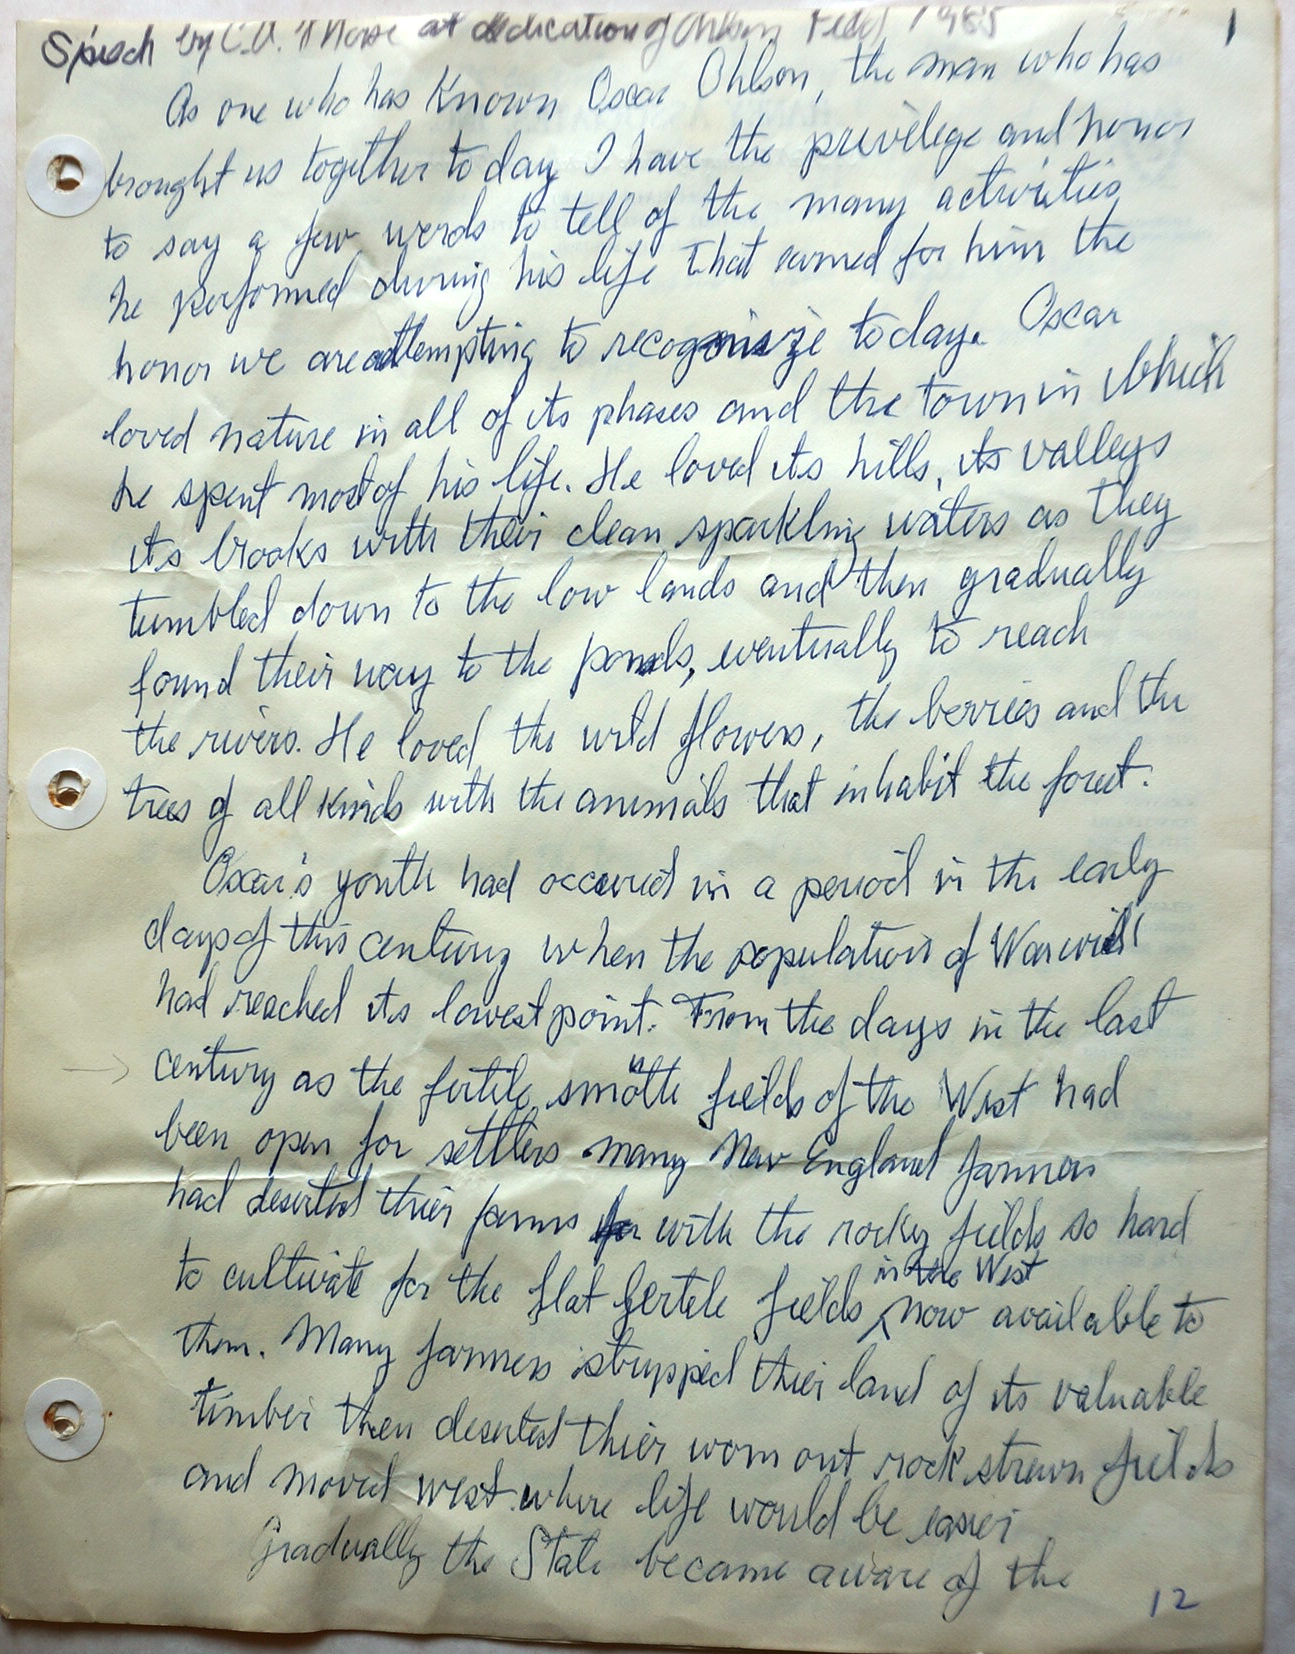 Speech by C.A. Morse at dedication of Ohlson Field, 1985
1
As one who has Known Oscar Ohlson, the man who has
brought us together to day I have the privelege and honor
to say a few words to tell of the many activities
he performed during his life that earned for him the
honor we are attempting to recognize today. Oscar
loved nature in all of its phases and the town in which
he spent most of his life. He loved its hills, its valleys
its brooks with their clean sparkling waters as they
tumbled down to the low lands and then gradually
found their way to the ponds, eventually to reach
the rivers. He loved the wild flowers, the berries and the
trees of all kinds with the animals that inhabit the forest.
Oscar's youth had occured in a period in the early
days of this century when the population of Warwick
had reached its lowest point. From the days in the last
century as the fertile smooth fields of the West had
been open for settlers many New England farmers
had deserted thier farms with the rocky fields so hard
to cultivate for the flat fertile fields in the West now available to
them. Many farmers stripped thier land of its valuable
timber then deserted thier worn out rock strewn fields
and moved west where life would be easier
Gradually the State became aware of the
12